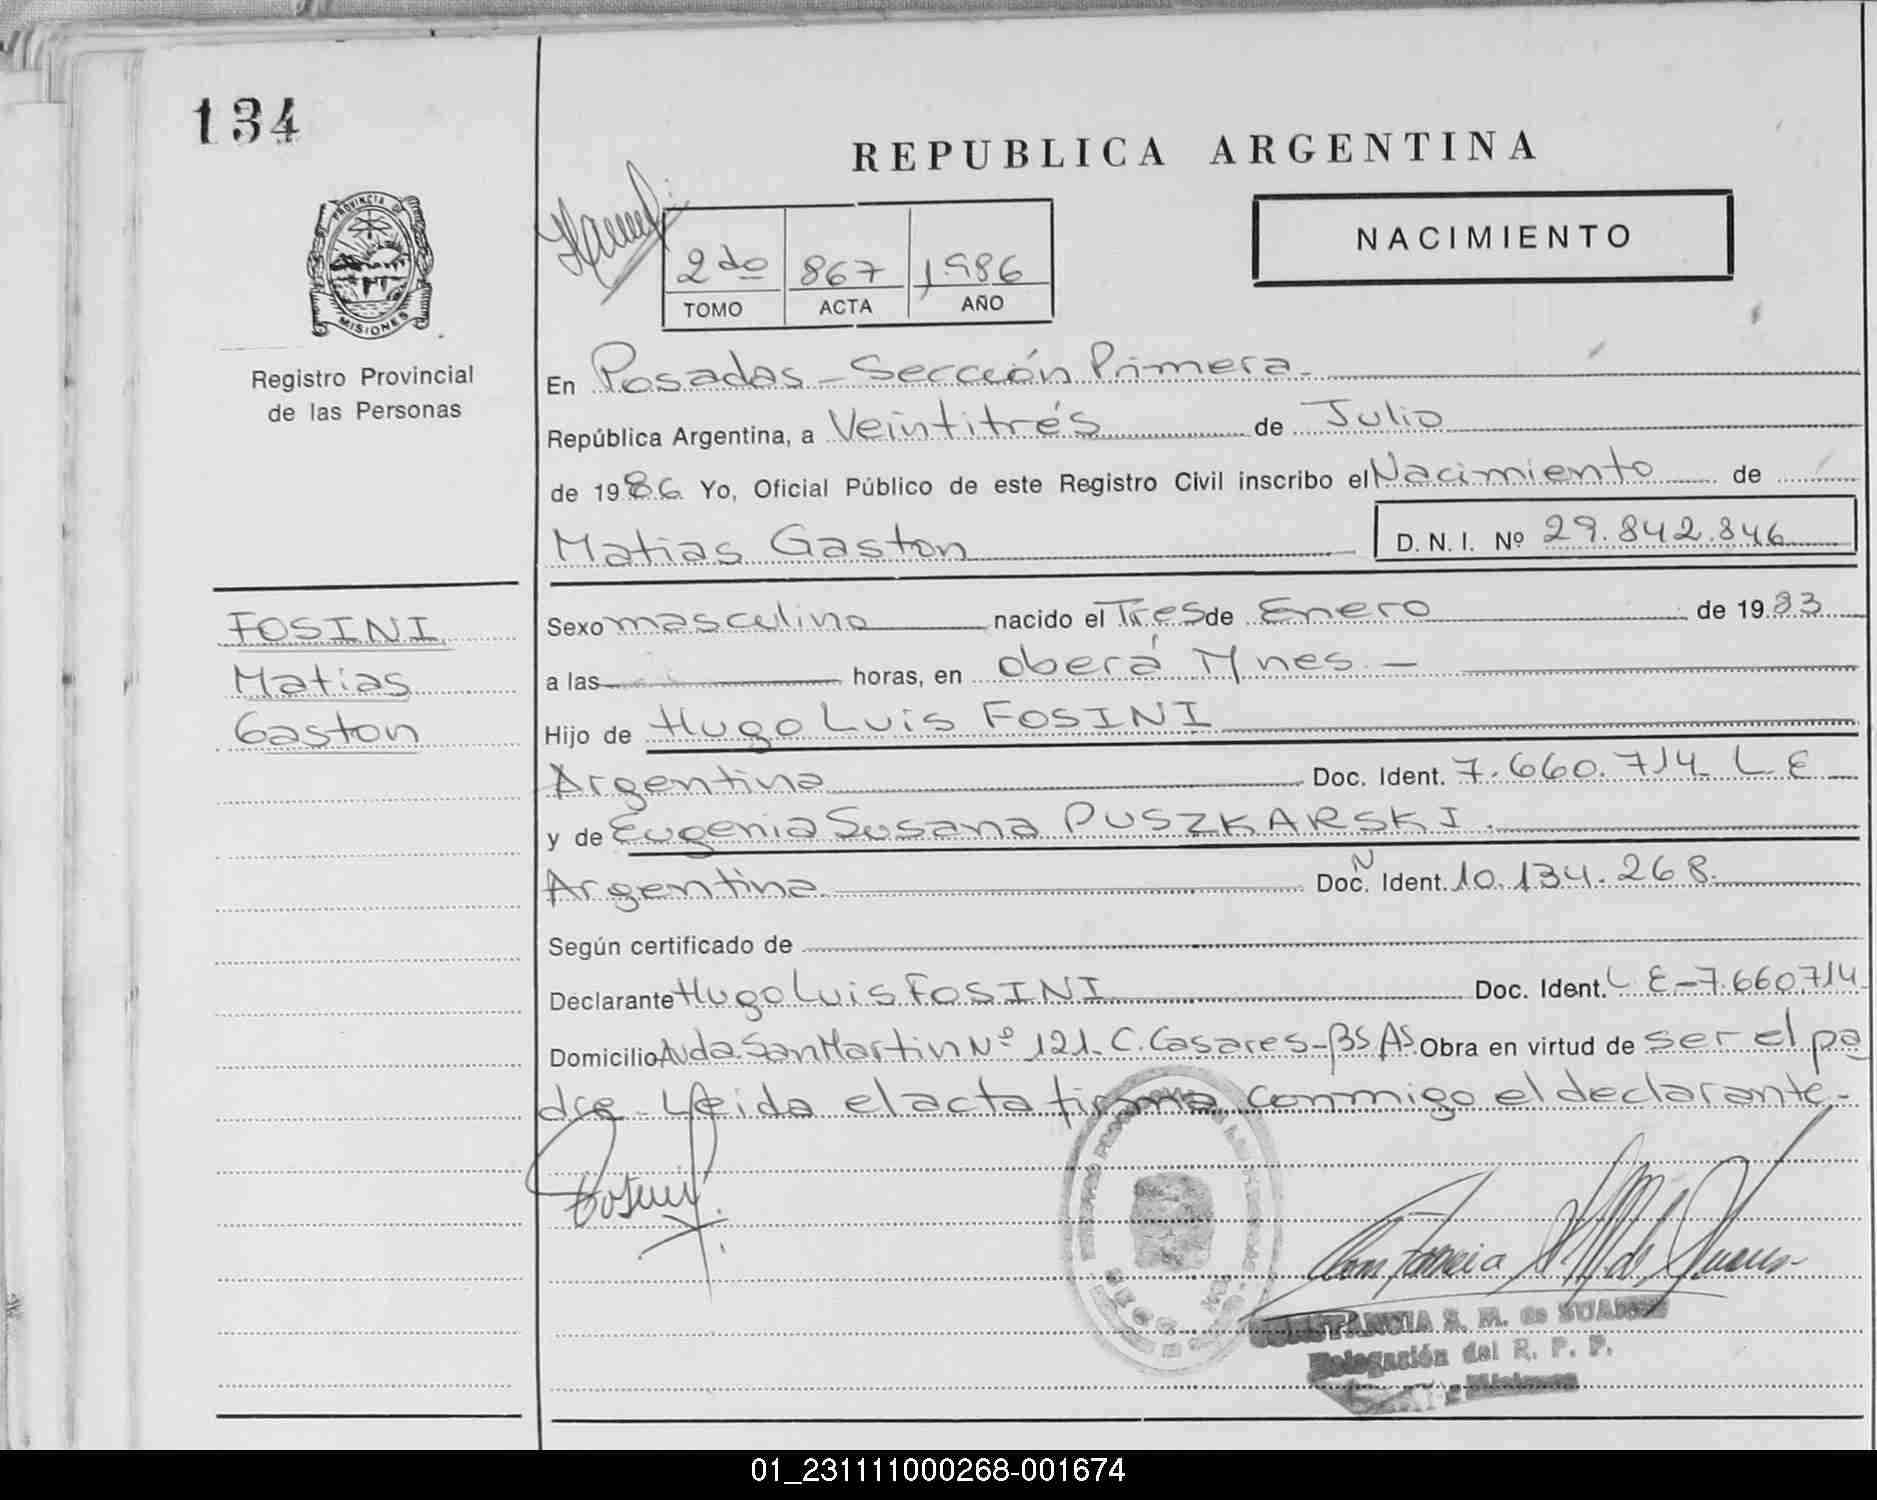 134
REPUBLICA ARGENTINA
NACIMIENTO
2do 867 1.986
TOMO ACTA AÑO
PROVINCIA DE
MISIONES
Registro Provincial
de las Personas
En Posadas - Sección Primera.
República Argentina, a Veintitrés de Julio
de 1986. Yo, Oficial Público de este Registro Civil inscribo el Nacimiento de
Matias Gaston D. N. I. Nº 29.842.846
FOSINI
Matias
Gaston
Sexo masculino nacido el Tres de Enero de 1983
a las horas, en Oberá Mnes. -
Hijo de Hugo Luis FOSINI
Argentina Doc. Ident. 7.660.714 L E
y de Eugenia Susana PUSZKARSKI.
Argentina Doc. Ident. Nº 10.134.268.
Según certificado de
Declarante Hugo Luis FOSINI Doc. Ident. L E-7.660.714
Domicilio Avda. San Martin Nº 121. C. Casares - BS AS. Obra en virtud de ser el pa
dre - Leida el acta firma conmigo el declarante.-
CONSTANCIA S. M. de
Delegación del R. P. P.
Misiones
01_231111000268-001674